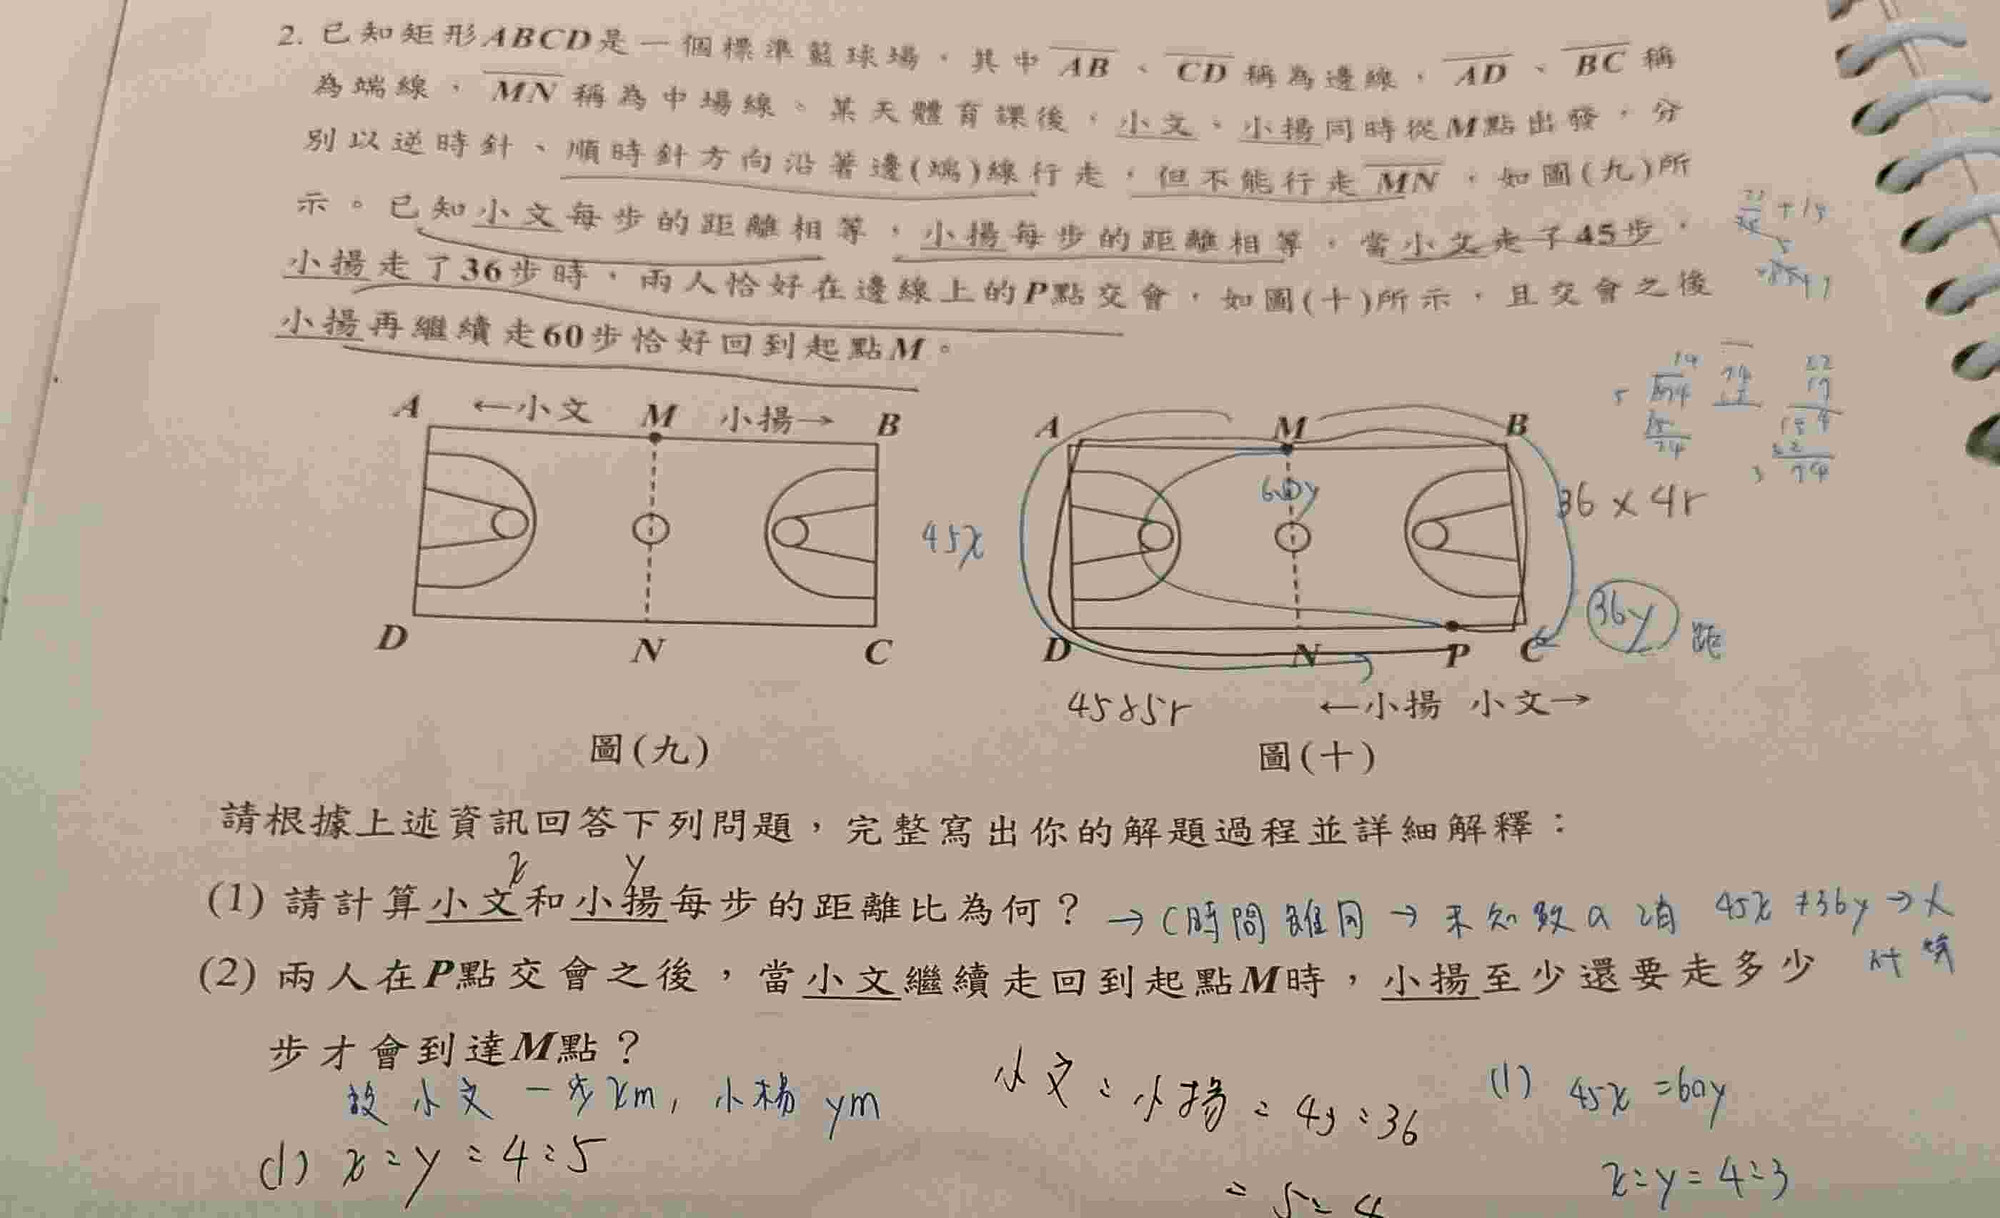 2. 已知矩形ABCD是一個標準籃球場，其中AB、CD稱為邊線，AD、BC稱
為端線，MN稱為中場線。某天體育課後，小文、小揚同時從M點出發，分
別以逆時針、順時針方向沿著邊(端)線行走，但不能行走MN，如圖(九)所
示。已知小文每步的距離相等，小揚每步的距離相等，當小文走了45步，
小揚走了36步時，兩人恰好在邊線上的P點交會，如圖(十)所示，且交會之後
小揚再繼續走60步恰好回到起點M。
A ←小文 M 小揚→ B
D N C
圖(九)
A M B
60y
45x
36 x 4r
36y 距
D N P C
←小揚 小文→
45x5r
圖(十)
請根據上述資訊回答下列問題，完整寫出你的解題過程並詳細解釋：
x y
(1) 請計算小文和小揚每步的距離比為何？ → (時間雖同 → 未知數a 消 45x+36y →
(2) 兩人在P點交會之後，當小文繼續走回到起點M時，小揚至少還要走多少
步才會到達M點？
設 小文 一步xm, 小揚 ym
(1) x:y = 4:5
小文:小揚 = 45:36
= 5:4
(1) 45x = 60y
x:y = 4:3